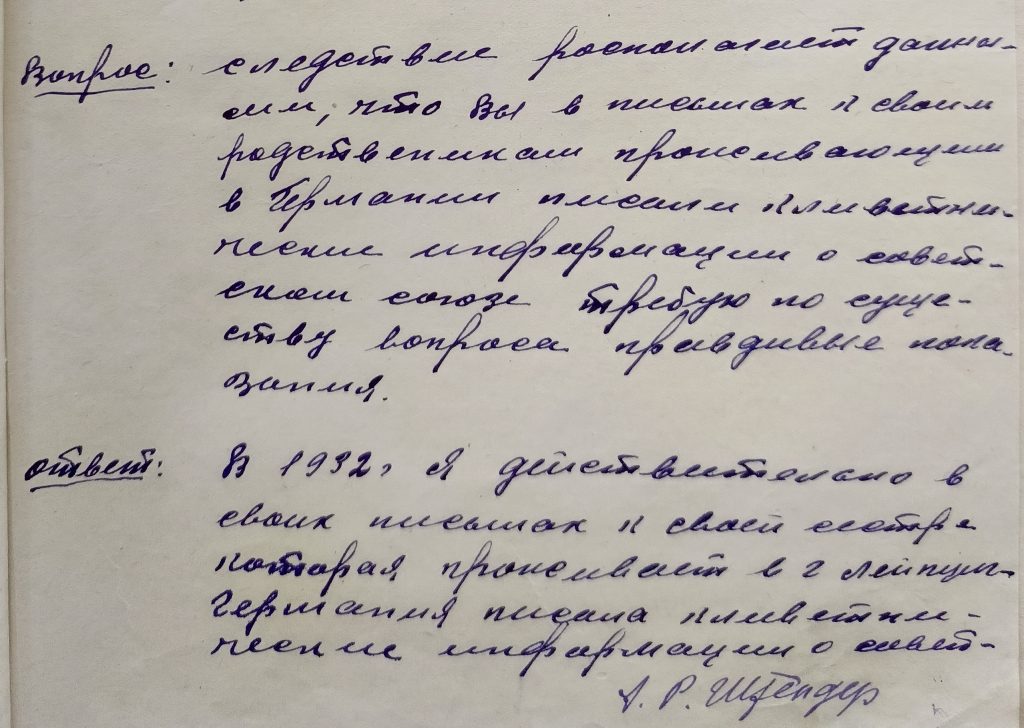 Вопрос: следствие роспологает данны-
ми, что Вы в письмах к своим
родственикам проживающими
в Германии писали кливитни-
ческие информации о совет-
ском союзе требую по суще-
ству вопроса правдивые пока-
зания.
ответ: В 1932 г Я действительно в
своих письмах к своей сестре
которая проживает в г Лейпциг-
Германия писала кливетни-
ческие информации о совет-
А. Р. Штендер